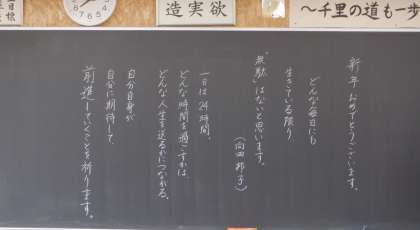 造実欲
〜千里の道も一歩
新年おめでとうございます。
どんな毎日にも
生きている限り
「無駄」はないと思います。
(向田邦子)
一日は24時間。
どんな時間を過ごすかは、
どんな人生を送るかにつながる。
自分自身が
自分に期待して、
前進していくことを祈ります。